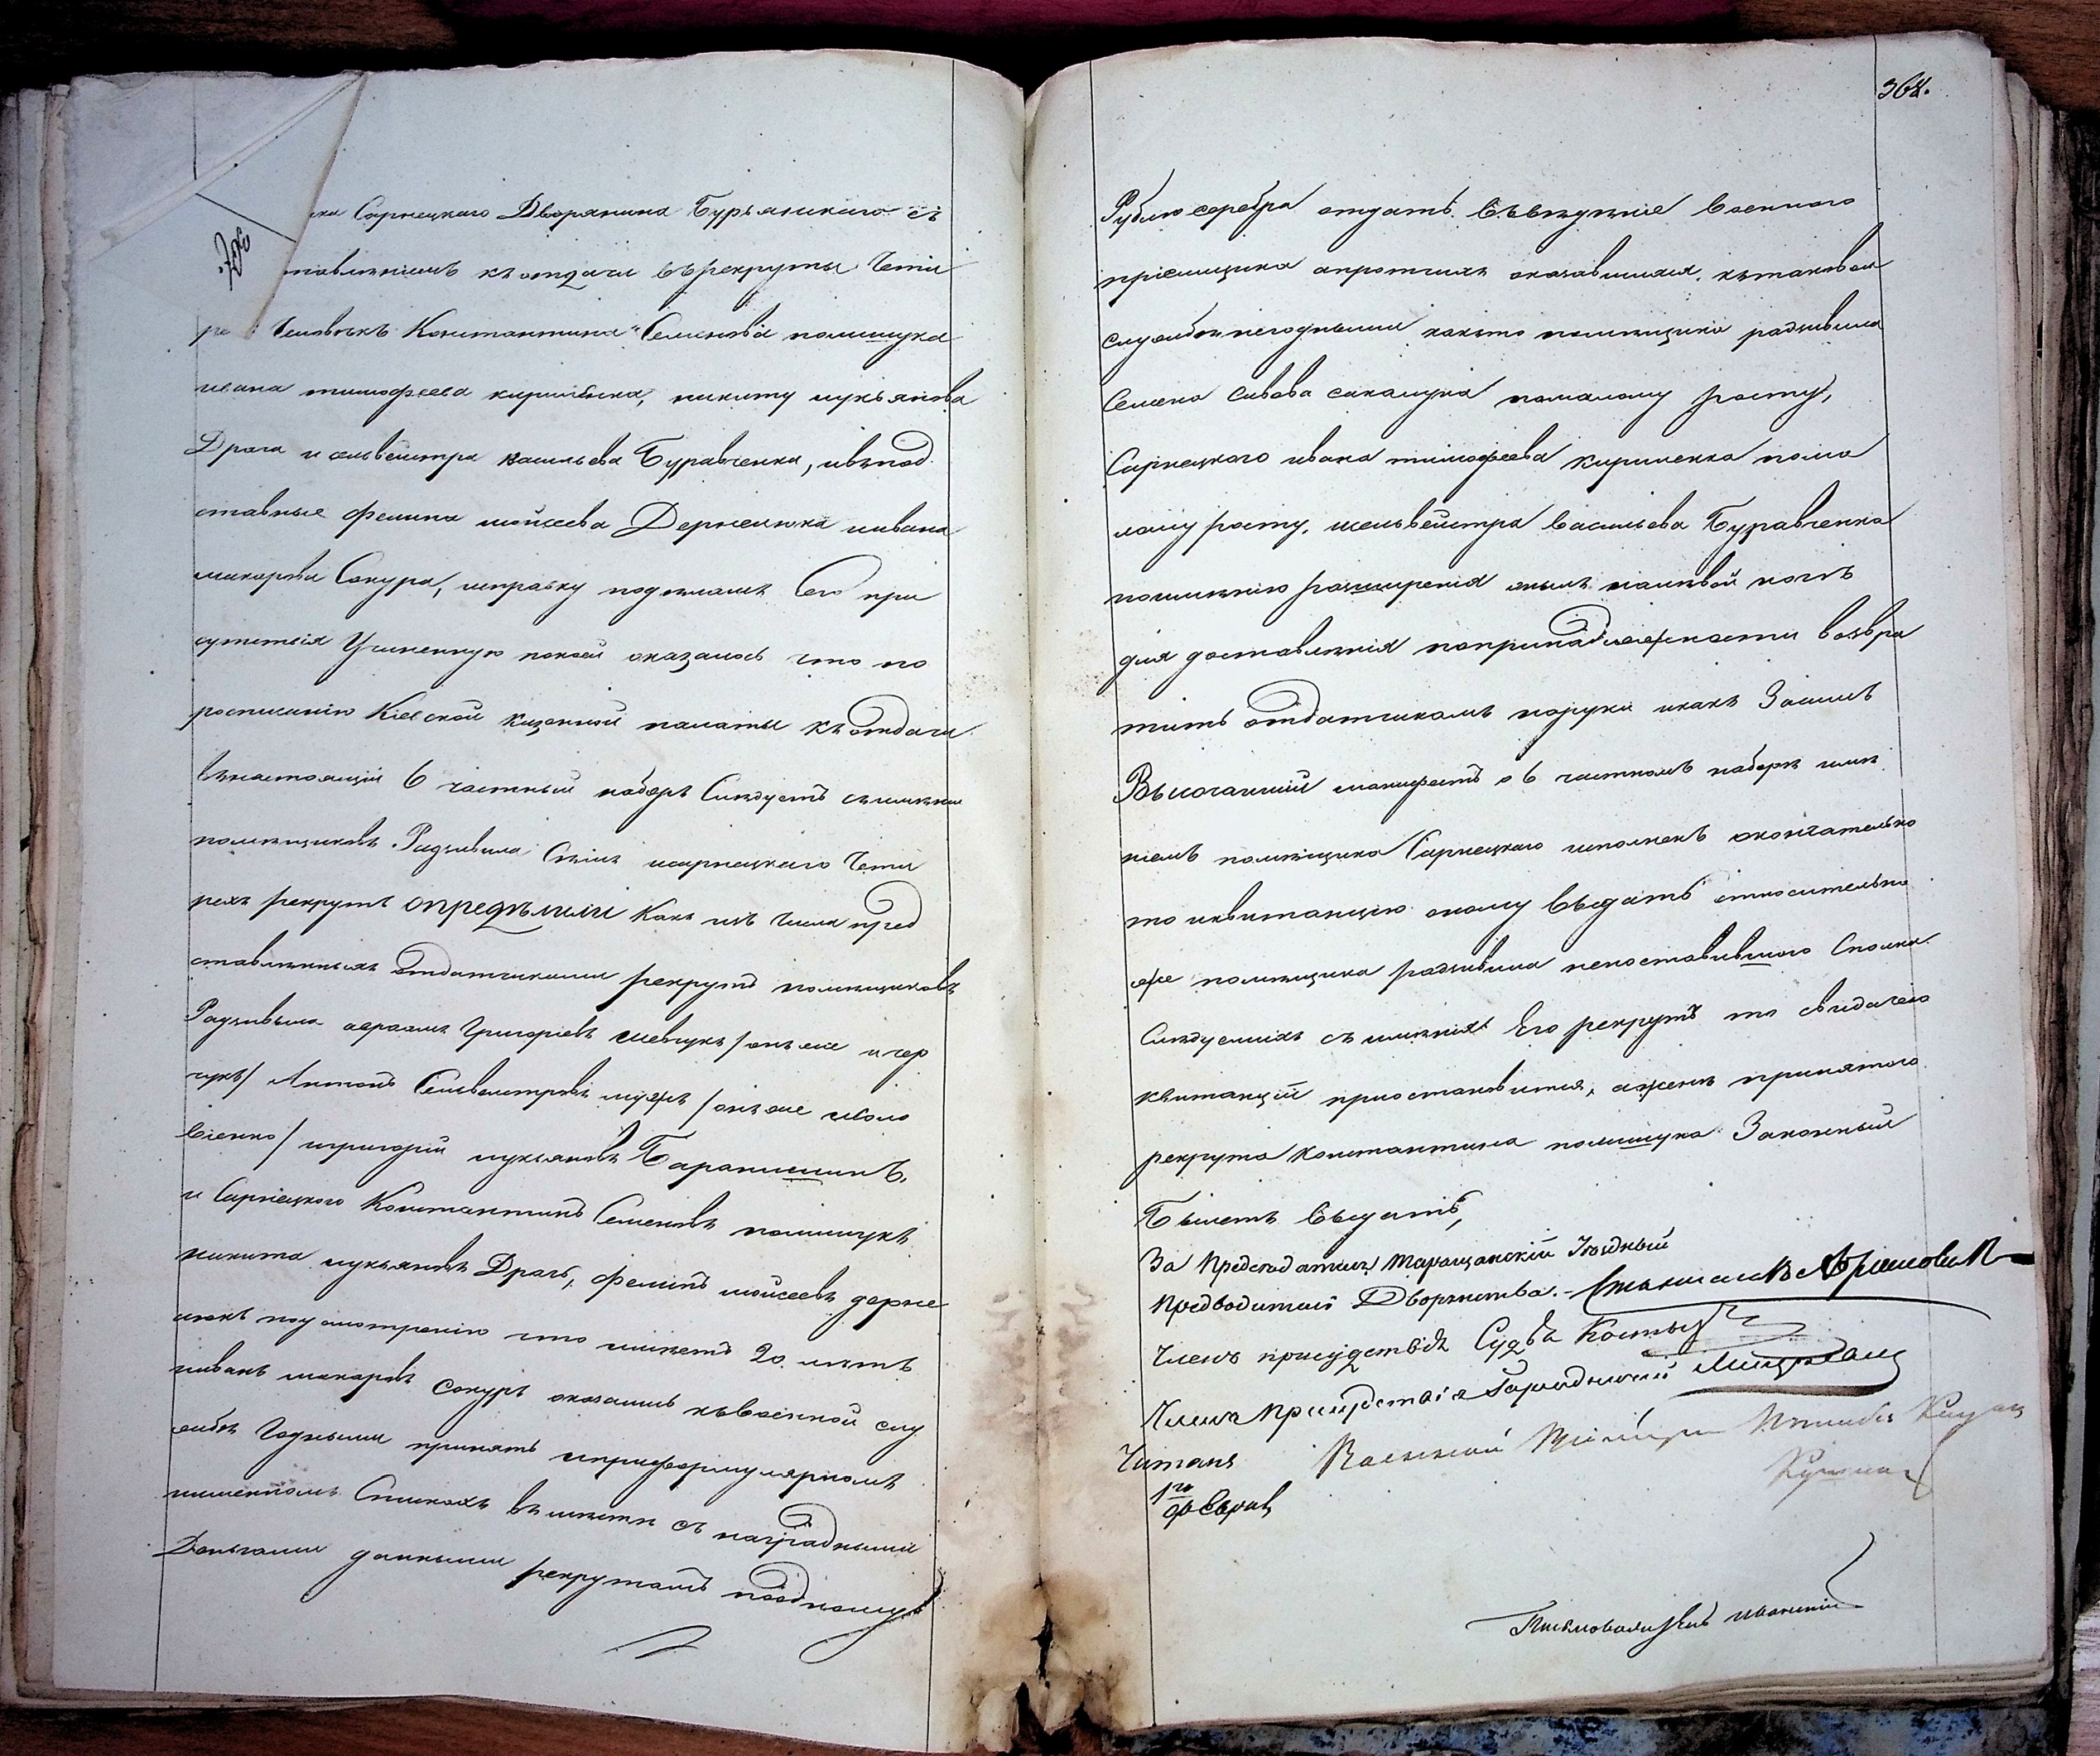 364.
ика Сарнецкаго Дворянина Бурьянскаго съ
тавленіемъ къ отдачи въ рекруты Чети
ре Человѣкъ Константина Семенова полищука
ивана тимофеева кириленка, никиту лукьянова
Драга и сельвестра васильева Буравченка, и въ под
ставные филипа мойсеева Дернелюка и ивана
макарова Сокура, исправку подѣламъ Сего при
сутствія Учиненную покоей оказалось что по
росписанію Кіевской казенной палаты къ отдачи
внастоящій 6 частный наборъ Слѣдуетъ съ имѣнія
помѣщиковъ Радзивила и Сарнецкаго Чети
рехъ рекрутъ опредѣлили Какъ изъ числа пред
ставленныхъ отдатчиками рекрутъ помѣщиковъ
Радзивила Григоріевъ шевчукъ / онъ же и гор
чукъ / Антонъ Сельвестровъ / онъ же
віенко / игригорій лукьяновъ
и Сарнецкаго Константинъ Семеновъ полищукъ
никита лукьяновъ Драгъ, филипъ мойсеевъ дерне
люкъ по усмотренію что имѣетъ 20 лѣтъ
и иванъ макаровъ Сокуръ оказались къ военной слу
жбѣ Годными принять и при формулярномъ
именномъ Спискахъ вмѣстѣ съ наградными
Деньгами данными рекрутамъ поодному
Рублю серебра отдать въ вѣденіе военнаго
пріемщика а протчихъ оказавшихся къ таковой
службѣ негодными какъ то помѣщика радзивила
Семена Савова сакалука помалому росту,
Сарнецкаго ивана тимофеева кириленка пома
лому росту, и сельвейстра Васильева Буравченка
поимѣнію разширенія жилъ на лѣвой ногѣ
для доставленія попринадлежности возвра
тить отдатчикамъ на руки икакъ За симъ
Высочайшій манифестъ о 6 частномъ наборѣ имѣ
ніемъ помѣщика Сарнецкаго исполненъ окончательно
то и квитанцію оному выдать относительно
же помѣщика радзивила непоставившаго Сполна
Слѣдуемыхъ съ имѣнія Его рекрутъ то свидачею
квитанцій пріостановится, а женѣ принятого
рекрута Константина полищука Законный
Билетъ выдать,
За Предсѣдателя Таращанскій Уѣздный
Предводитель Дворянства.-
Членъ присудствія Судья
Членъ Присудствія Городничій
Читалъ
1го
Военный
Письмоводитель